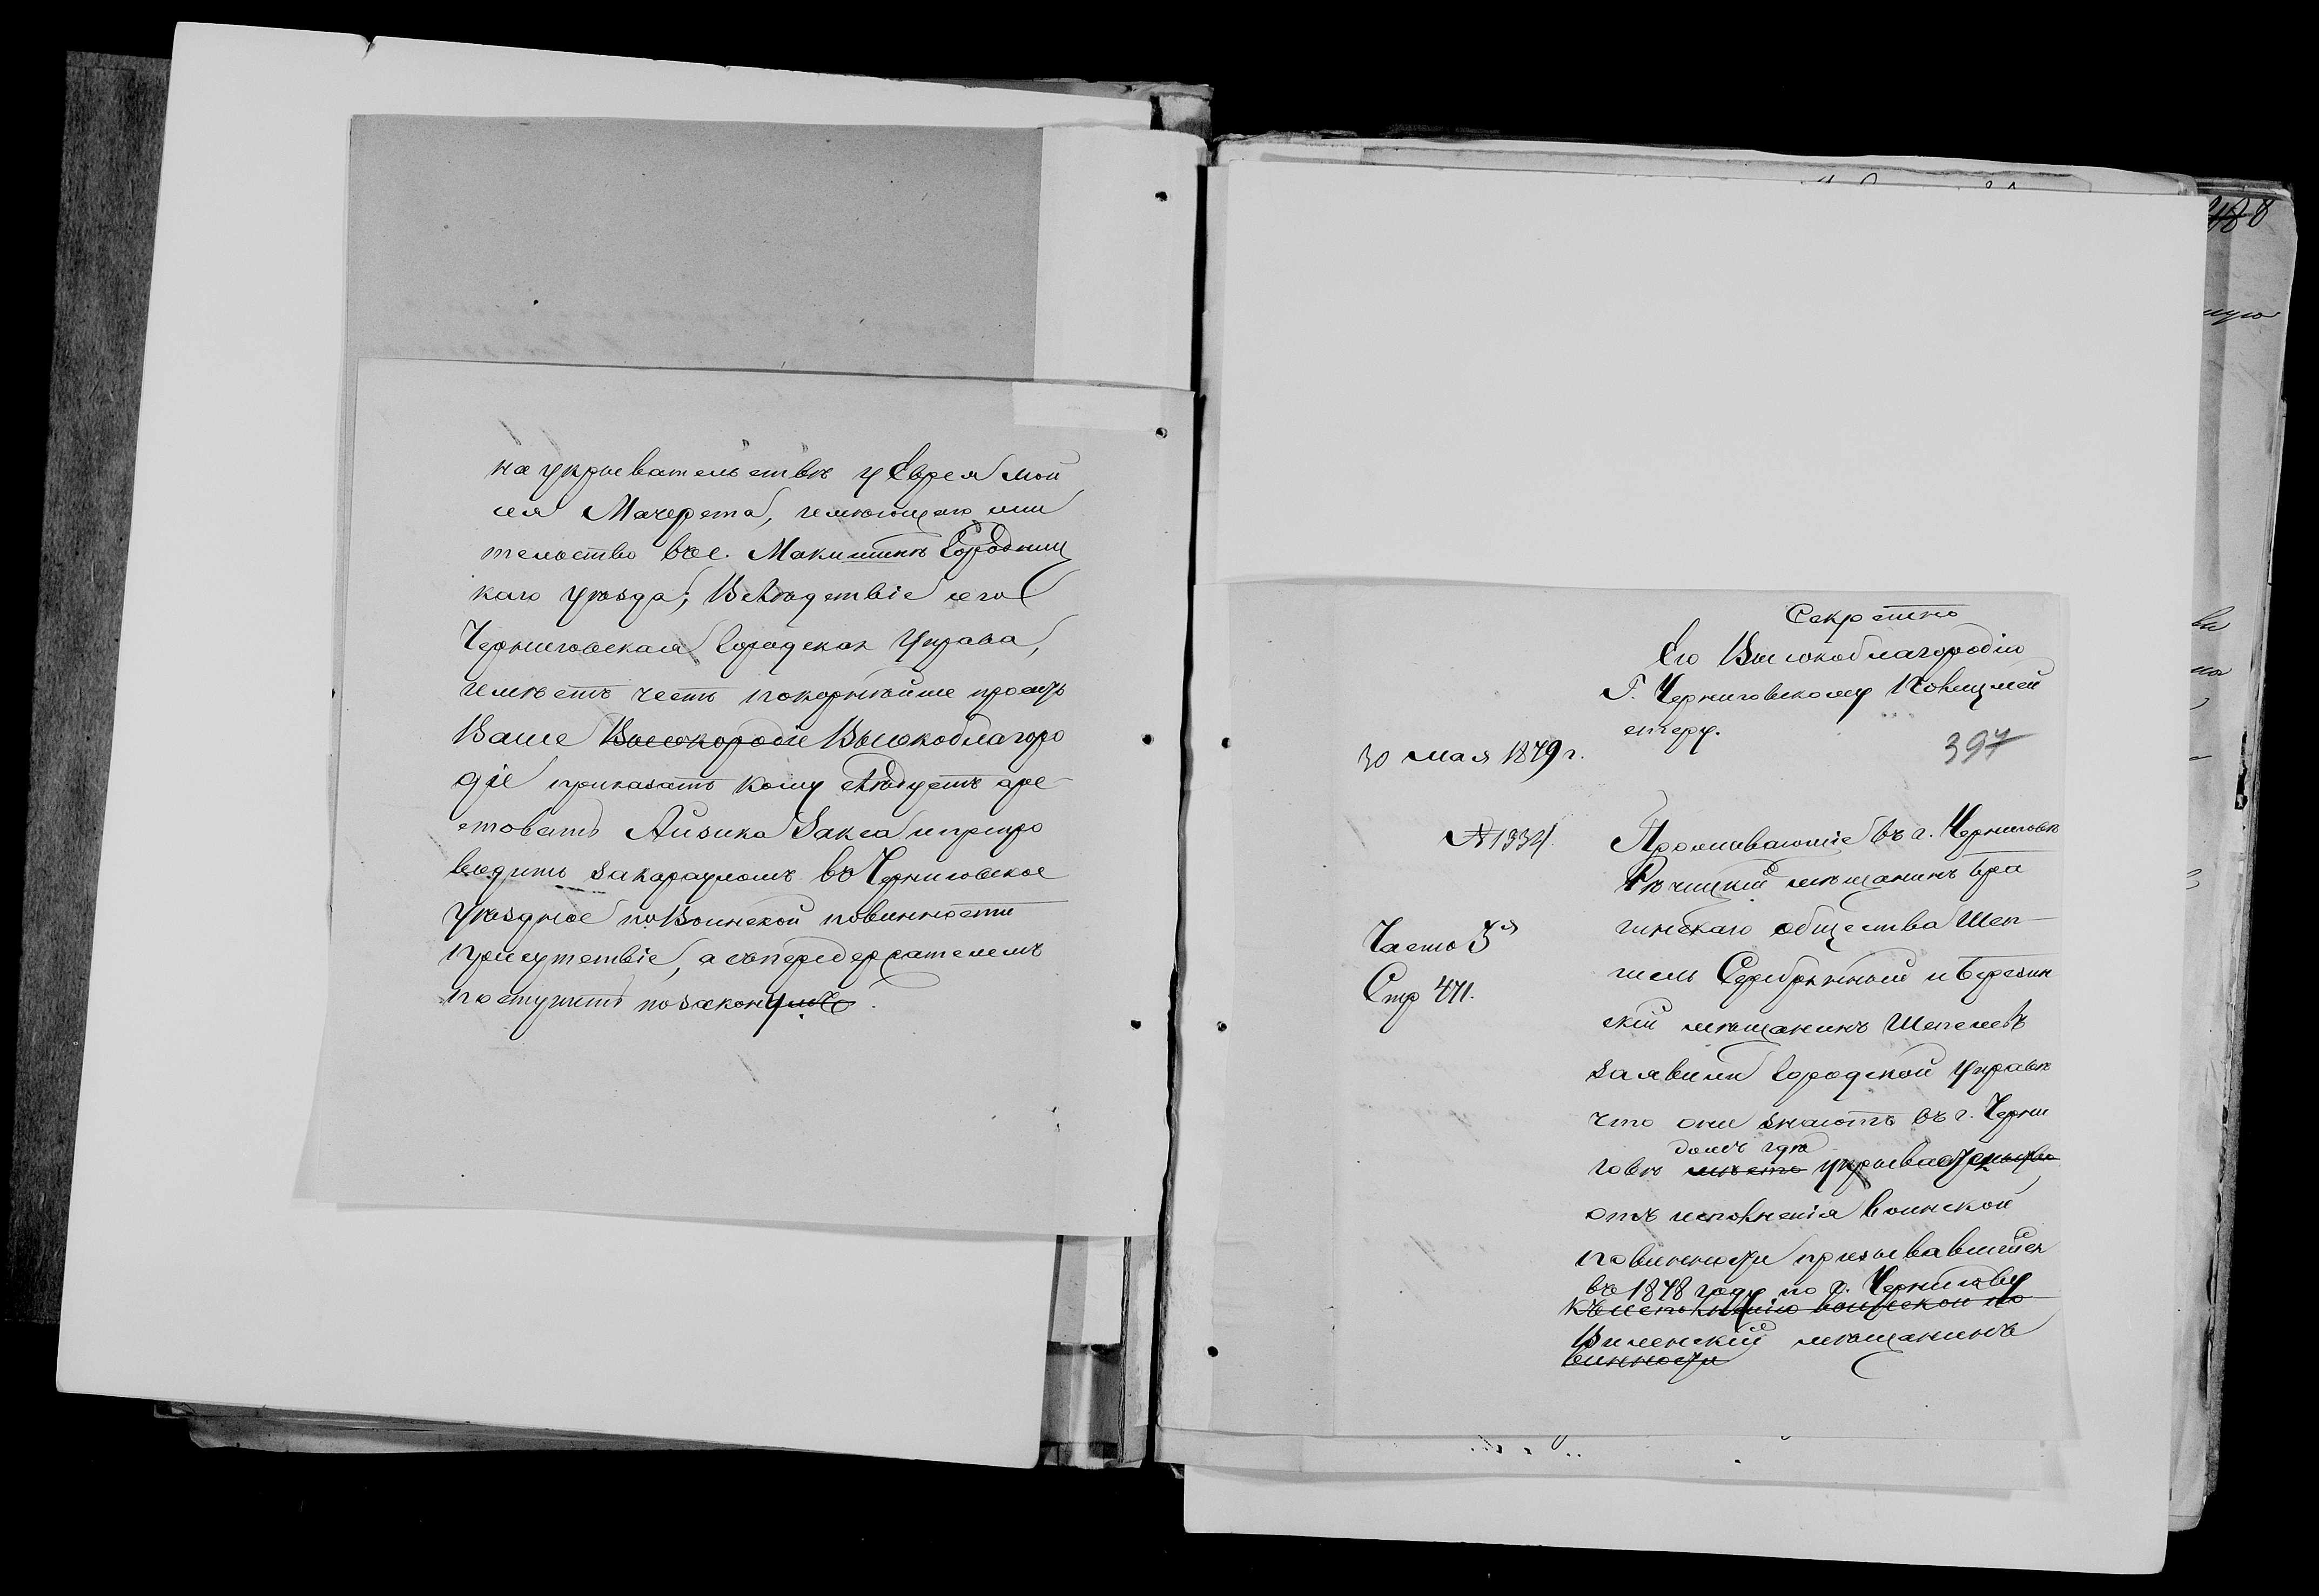 на укрывательствѣ у Еврея Мой
сея Мачерета, имѣющаго жи
тельство въ с. Макишинѣ Городниц
каго уѣзда; Вслѣдствіе сего
Черниговская Городская Управа,
имѣетъ честь покорнѣйше просить
Ваше Высокородіе Высокоблагоро
діе приказать кому слѣдуетъ аре-
стовать Айзика Закса и препро
водить за карауломъ въ Черниговское
уѣздное по Воинской повинности
присутствіе, а съ передержателемъ
поступить по закону
488
Секретно
Его Высокоблагородію
Г. Черниговскому Полицмей
стеру.
397
30 мая 1879 г.
№ 1334
Часть 3я
Стр 471.
Проживающіе въ г. Черниговѣ
Рѣчицкій мѣщанинъ Бра
гинскаго общества Шеп-
шель Серебрянный и Березин
скій мѣщанинъ Шепелевъ
заявили Городской Управѣ
что они знаютъ въ г. Черни
домъ гдѣ
говѣ мѣсто укрывается
отъ исполненія воинской
повинности призывавшійся
въ 1878 году по г. Чернигову
къ исполненію воинской по
Виленскій мѣщанинъ
винности